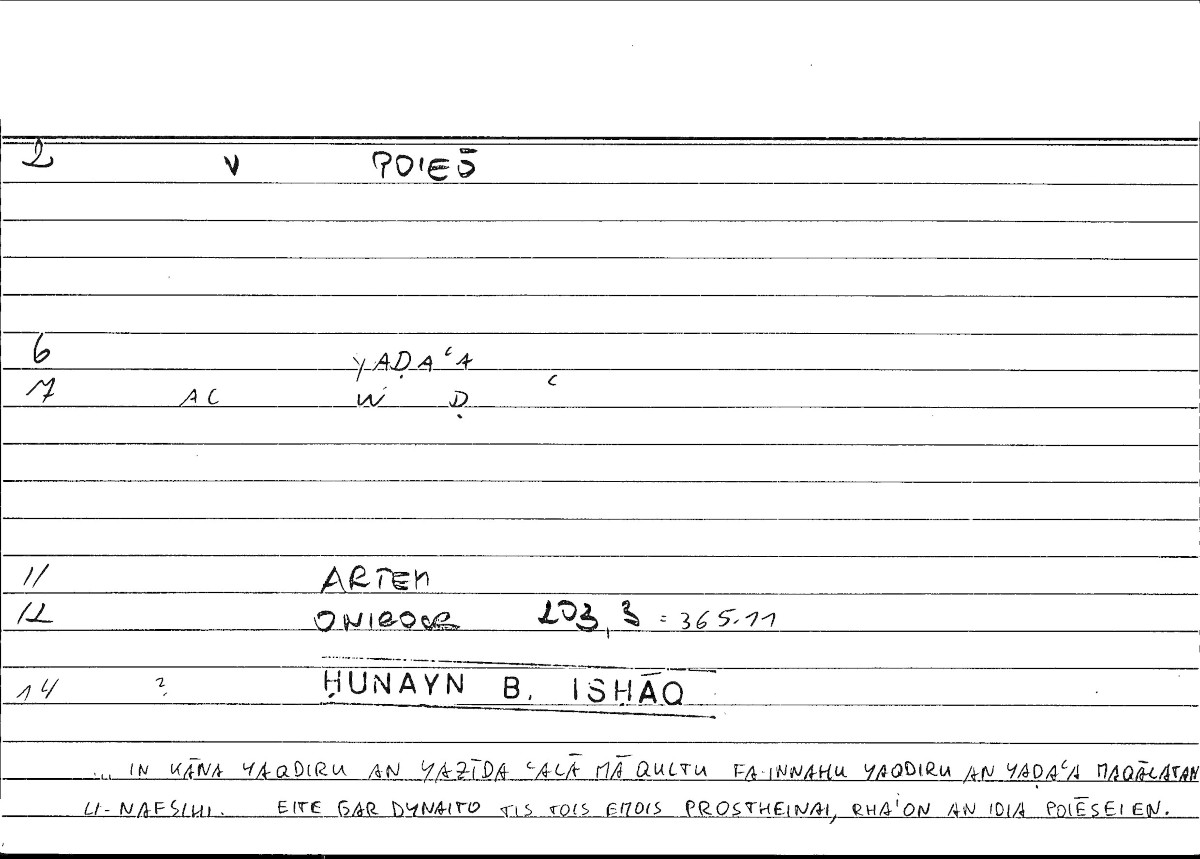 2 V POIEŌ
6 YAḌAʿA
7 AC W Ḍ ʿ
11 ARTEM
12 ONIROCR 203,3 = 365.11
14 ? ḤUNAYN B. ISḤĀQ
... IN KĀNA YAQDIRU AN YAZĪDA ʿALĀ MĀ QULTU FA-INNAHU YAQDIRU AN YAḌAʿA MAQĀLATAN
LI-NAFSIHI. EITE GAR DYNAITO TIS TOIS EMOIS PROSTHEINAI, RHA'ON AN IDIA POIĒSEIEN.